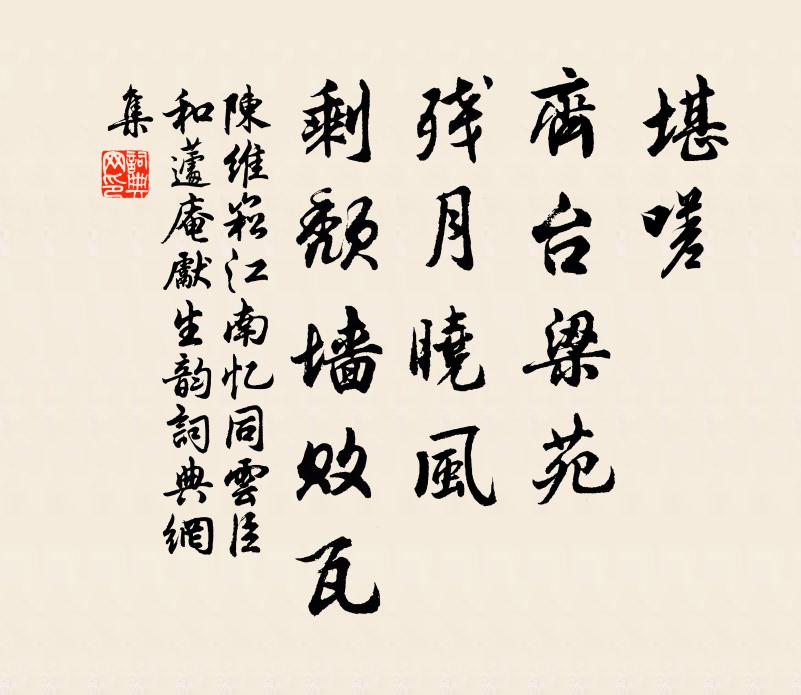 堪嗟
齊台梁苑
残月曉風
剩頽墙敗瓦
陳維崧江南忆同雲臣
和蘧庵獻生韵詞典網
集
詞典
网印